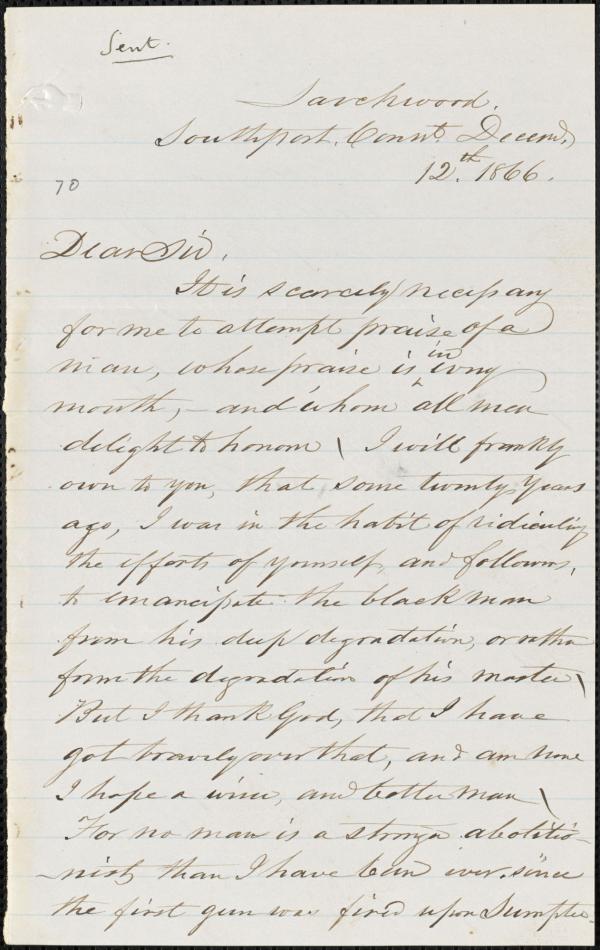 Sent.
Larchwood.
Southport. Connt. Decemb
12.th 1866.
70
Dear Sir,
It is scarcely necessary
for me to attempt praise of a
man, whose praise is in evry
mouth, – and whom all men
delight to honor \ I will frankly
own to you, that some twenty years
ago, I was in the habit of ridiculing
the efforts of yourself, and followers,
to emancipate the black man
from his deep degradation, or rather
from the degradation of his master \
But I thank God, that I have
got bravely over that, and am now
I hope a wiser, and better man \
For no man is a stronger abolitio-
-nist, than I have been ever since
the first gun was fired upon Sumpter.